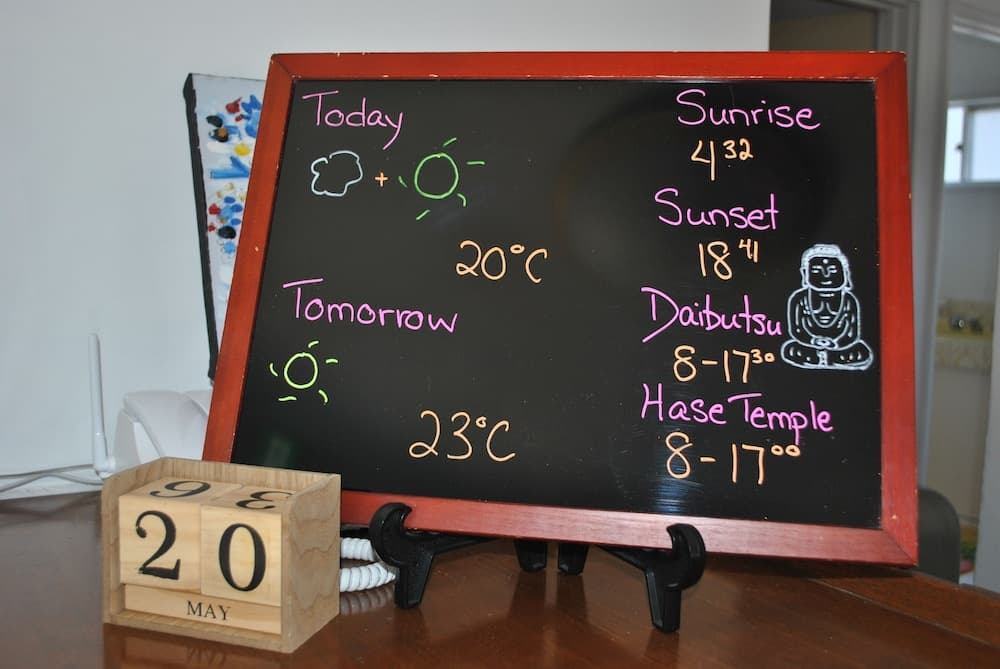 Today
+
20°C
Tomorrow
23°C
Sunrise
4 32
Sunset
18 41
Daibutsu
8-17 30
Hase Temple
8-17 00
9 3
20
MAY